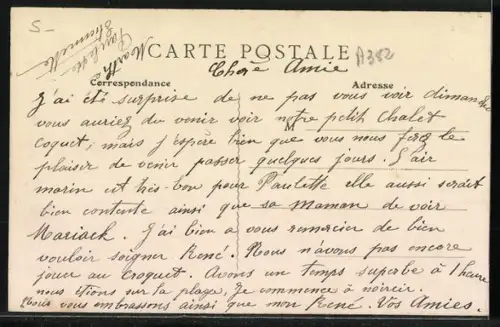 5-
Marthe
Paulette
CARTE POSTALE
A382
Correspondance
Adresse
Chère Amie
J'ai été surprise de ne pas vous voir dimanche
vous auriez du venir voir notre petit Chalet
Coquet, mais j'espère bien que vous nous ferez le
plaisir de venir passer quelques jours. L'air
marin est très-bon pour Paulette elle aussi serait
bien contente ainsi que sa Maman de voir
Mariack. J'ai bien a vous remercier de bien
vouloir soigner René. Nous n'avons pas encore
jouer au Croquet. Avons un temps superbe à 1 heure
nous étions sur la plage, je commence à noircir.
Nous vous embrassons ainsi que mon René. Vos Amies.